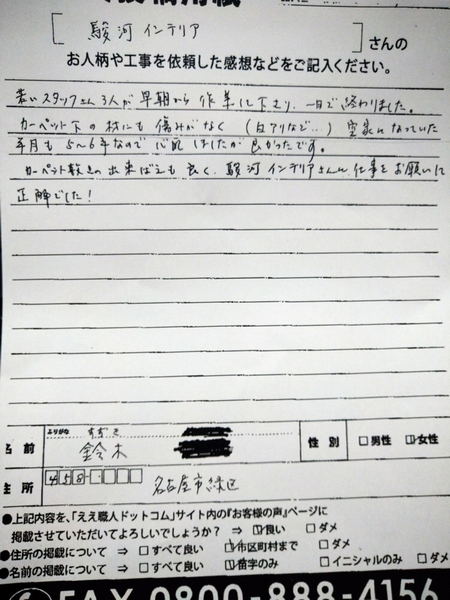 [ 駿河インテリア ] さんの
お人柄や工事を依頼した感想などをご記入ください。
若いスタッフさん3人が早朝から作業に下さり、一日で終わりました。
カーペット下の材にも傷みがなく(白アリなど…)空家になっていた
年月も5〜6年なので心配しましたが良かったです。
カーペット敷きの出来ばえも良く、駿河インテリアさんに仕事をお願いして
正解でした!
ふりがな すずき
名前 鈴木 性別 □男性 ☑女性
住所 458-□□□□ 名古屋市緑区
●上記内容を、「ええ職人ドットコム」サイト内の『お客様の声』ページに
掲載させていただいてよろしいでしょうか? ⇒ ☑良い □ダメ
●住所の掲載について ⇒ □すべて良い ☑市区町村まで □ダメ
●名前の掲載について ⇒ □すべて良い ☑苗字のみ □イニシャルのみ □ダメ
FAX 0800-888-4156